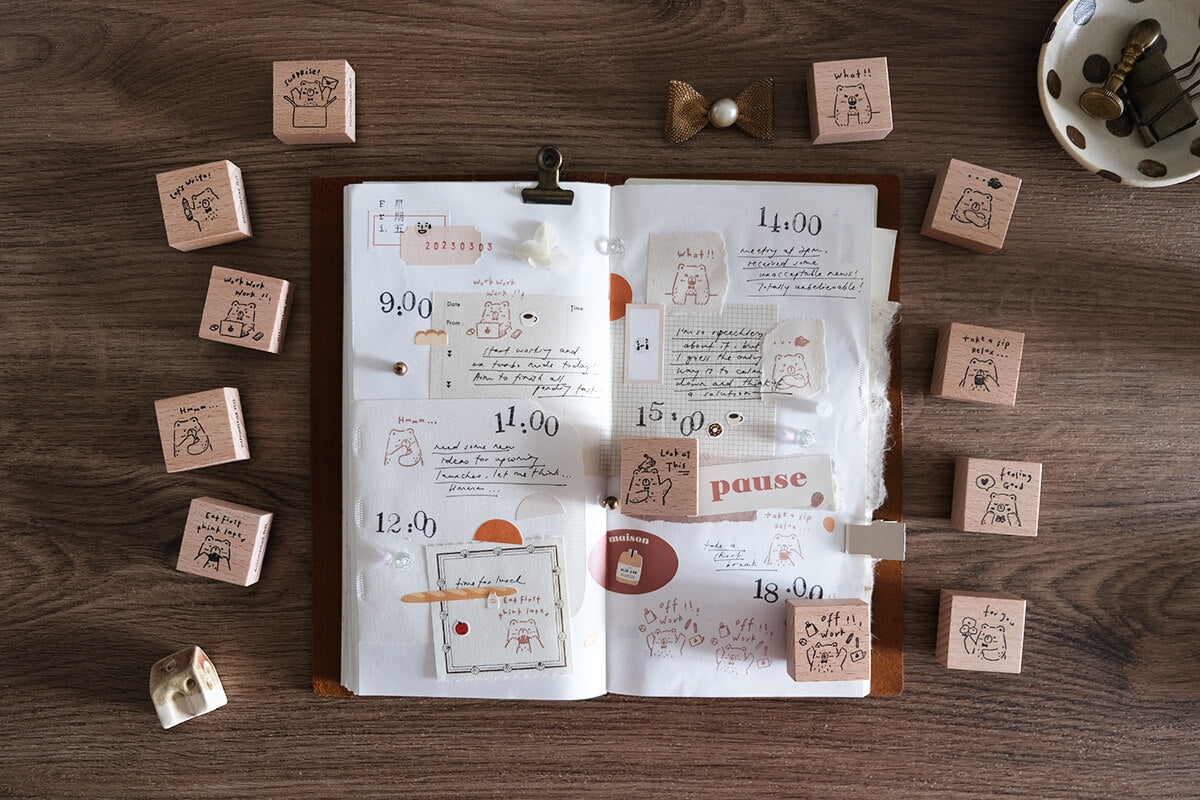 SURPRISE!
What!!
Let's write!
work work
work !!!
Hmmm...
Eat first
think late,
take a sip
Relax...
feeling
Good
for you
F 星
r 期
i. 五
20230303
9:00
work work
work !!!
Date
Time
From
start working and
to finish all
11:00
Hmmm...
need some new
ideas for upcoming
launches, let me think...
Hmmmm...
12:00
time for lunch
Eat first
think late,
14:00
What!!
meeting at 2pm,
received some
unacceptable news!
Totally unbelievable!
I'm so speechless
about it, but
I guess the only
way is to calm
down and think of
a solution
15:00
Look at
This
pause
maison
take a sip
Relax...
take a
short
break
18:00
off !!!
work
off !!!
work
off !!!
work